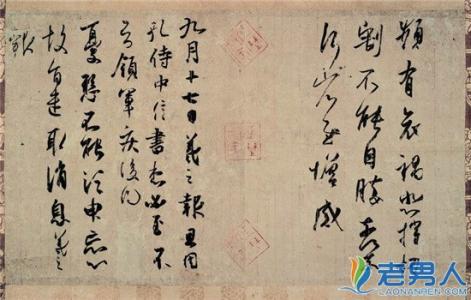 頻有哀禍悲摧切
割不能自勝奈何
奈何省慰增感
九月十七日羲之報且因
孔侍中信書想必至不
知領軍疾後問
憂懸不能須臾忘心
故旨遣取消息羲之
報
老男人
LAONANREN.COM